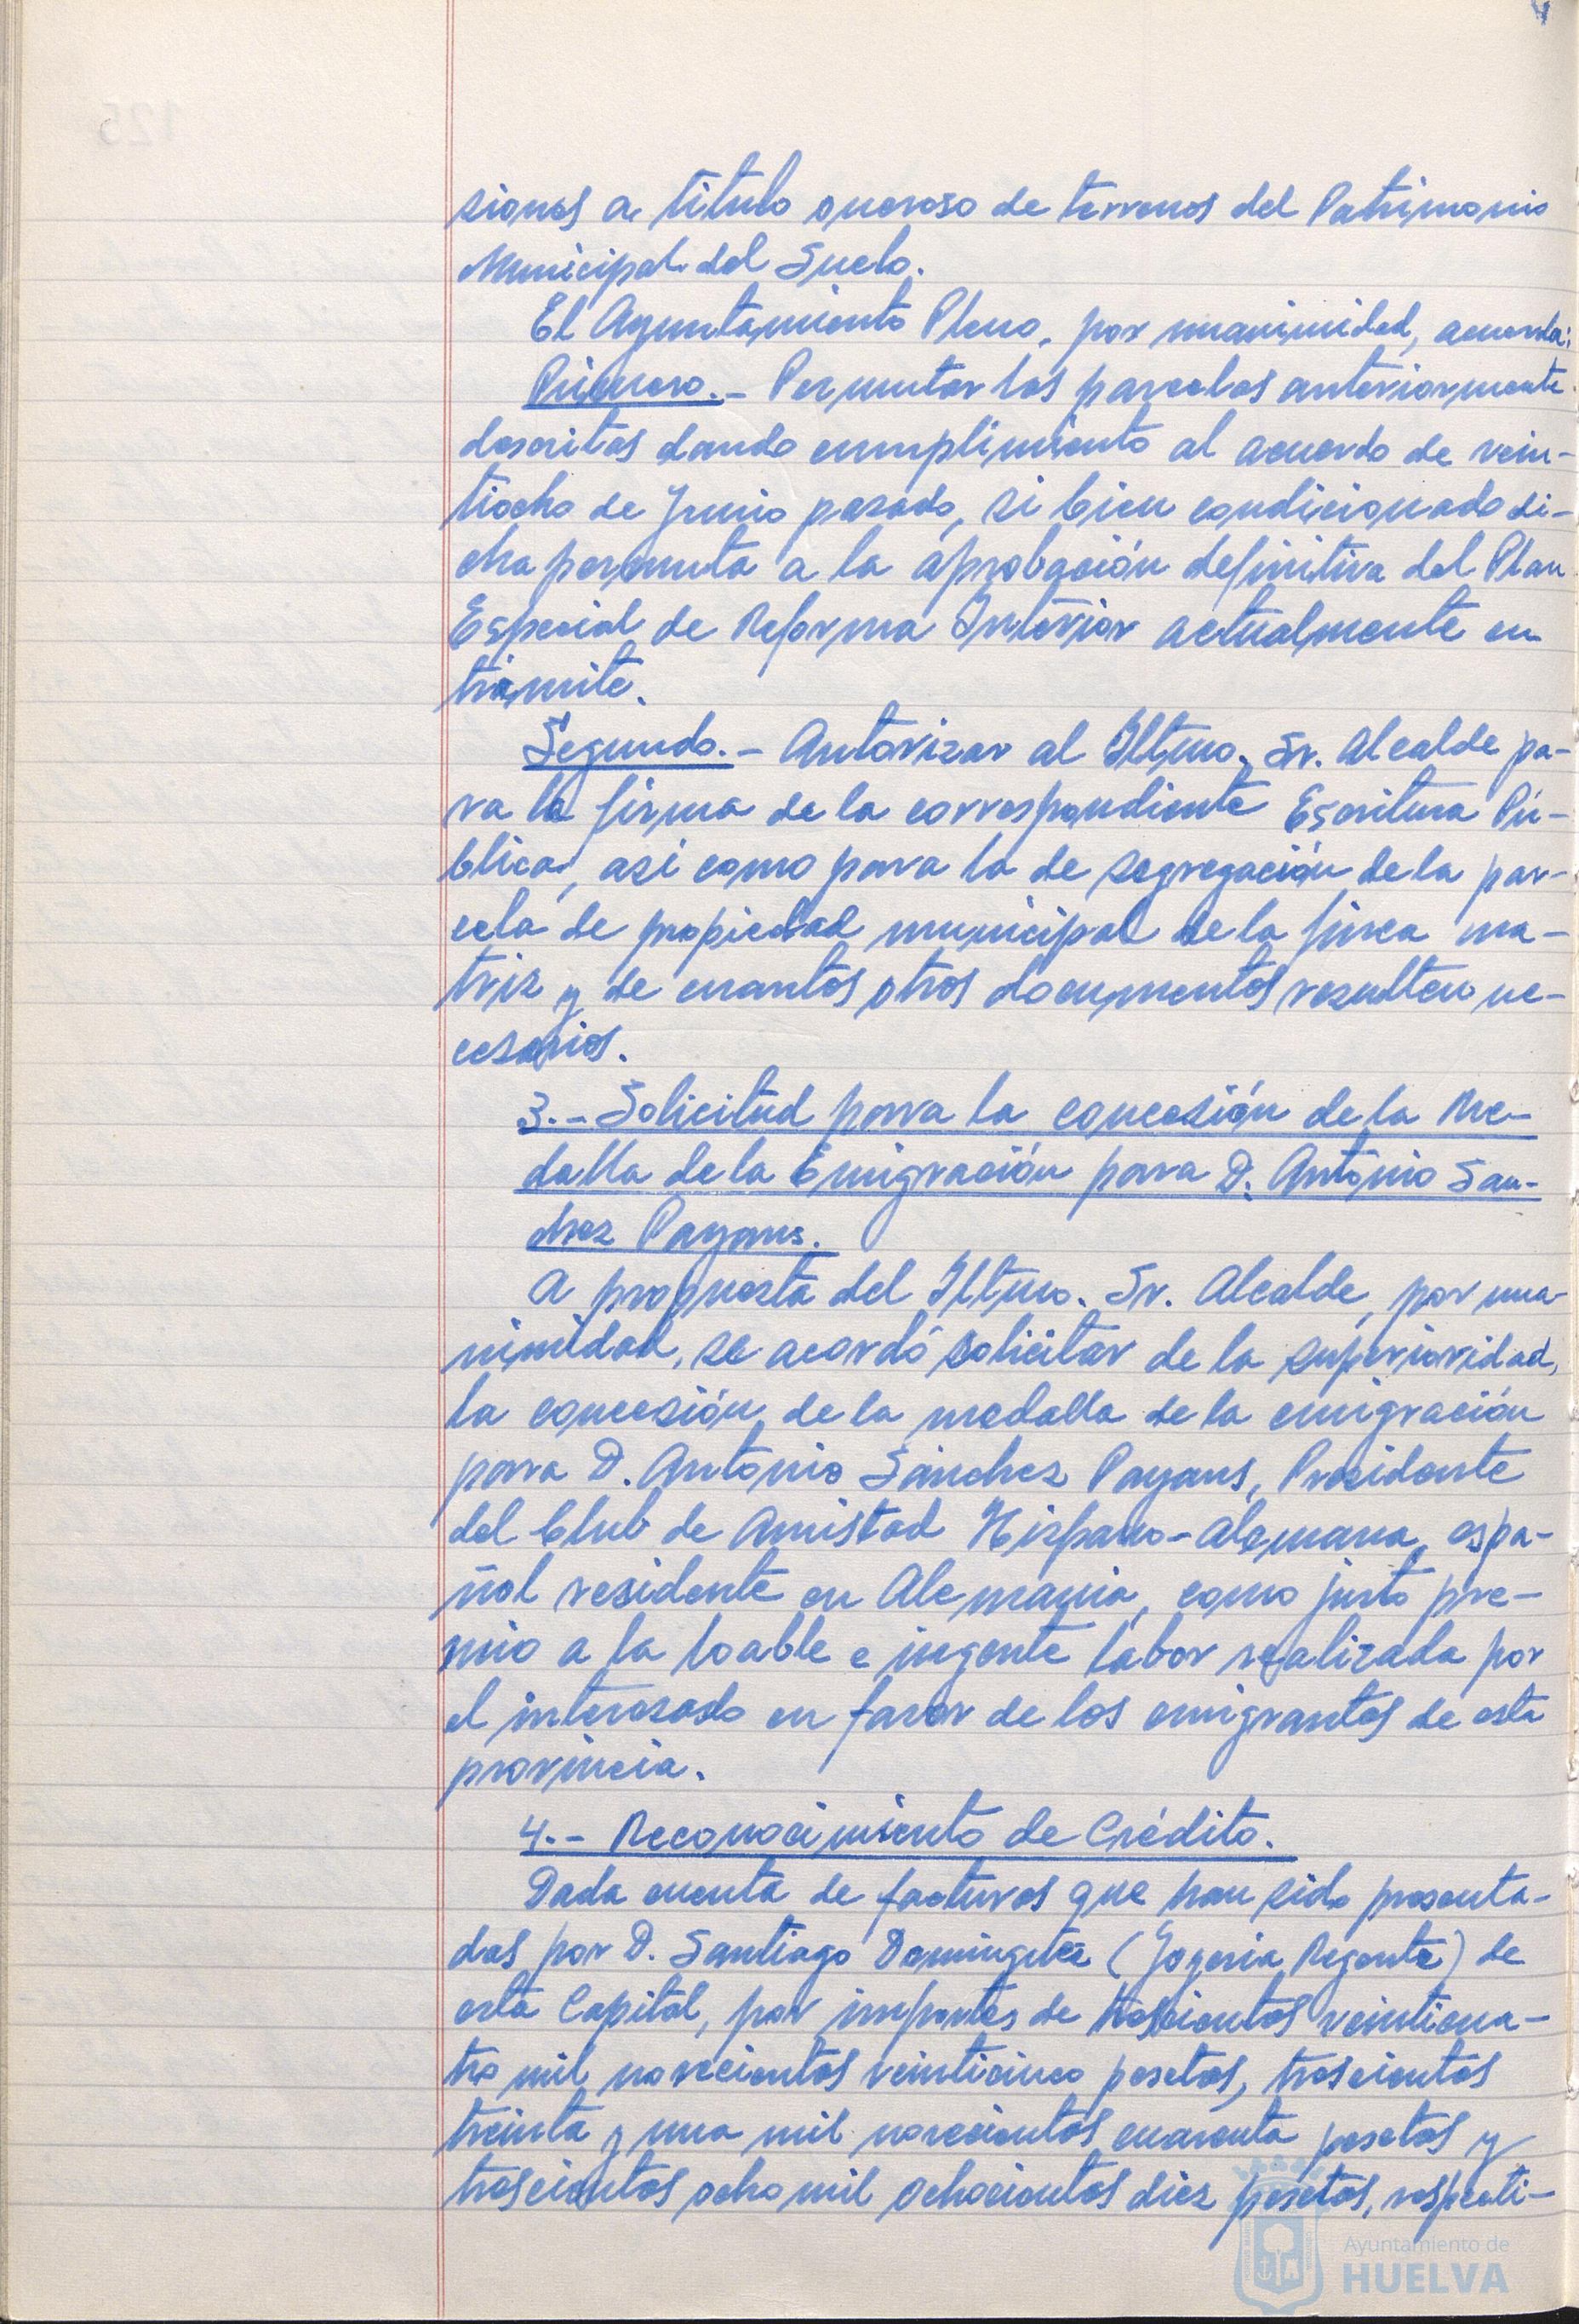 siones a título oneroso de terrenos del Patrimonio
Municipal del Suelo.
El Ayuntamiento Pleno, por unanimidad, acuerda:
Primero.- Permutar las parcelas anteriormente
descritas dando cumplimiento al acuerdo de vein-
tiocho de Junio pasado, si bien condicionado di-
cha permuta a la aprobación definitiva del Plan
Especial de Reforma Interior actualmente en
trámite.
Segundo.- Autorizar al Iltmo. Sr. Alcalde pa-
ra la firma de la correspondiente Escritura Pú-
blica, así como para la de segregación de la par-
cela de propiedad municipal de la finca ma-
triz y de cuantos otros documentos resulten ne-
cesarios.
3.- Solicitud para la concesión de la Me-
dalla de la Emigración para D. Antonio San-
chez Payans.
A propuesta del Iltmo. Sr. Alcalde, por una-
nimidad, se acordó solicitar de la superioridad,
la concesión de la medalla de la emigración
para D. Antonio Sánchez Payans, Presidente
del Club de Amistad Hispano-Alemana, espa-
ñol residente en Alemania, como justo pre-
mio a la loable e ingente labor realizada por
el interesado en favor de los emigrantes de esta
provincia.
4.- Reconocimiento de Crédito.
Dada cuenta de facturas que han sido presenta-
das por D. Santiago Domínguez (Joyería Regente) de
esta Capital, por importes de trescientas veinticua-
tro mil novecientas veinticinco pesetas, trescientas
treinta y una mil novecientas cuarenta pesetas y
trescientas ocho mil ochocientas diez pesetas, respecti-
Ayuntamiento de
HUELVA